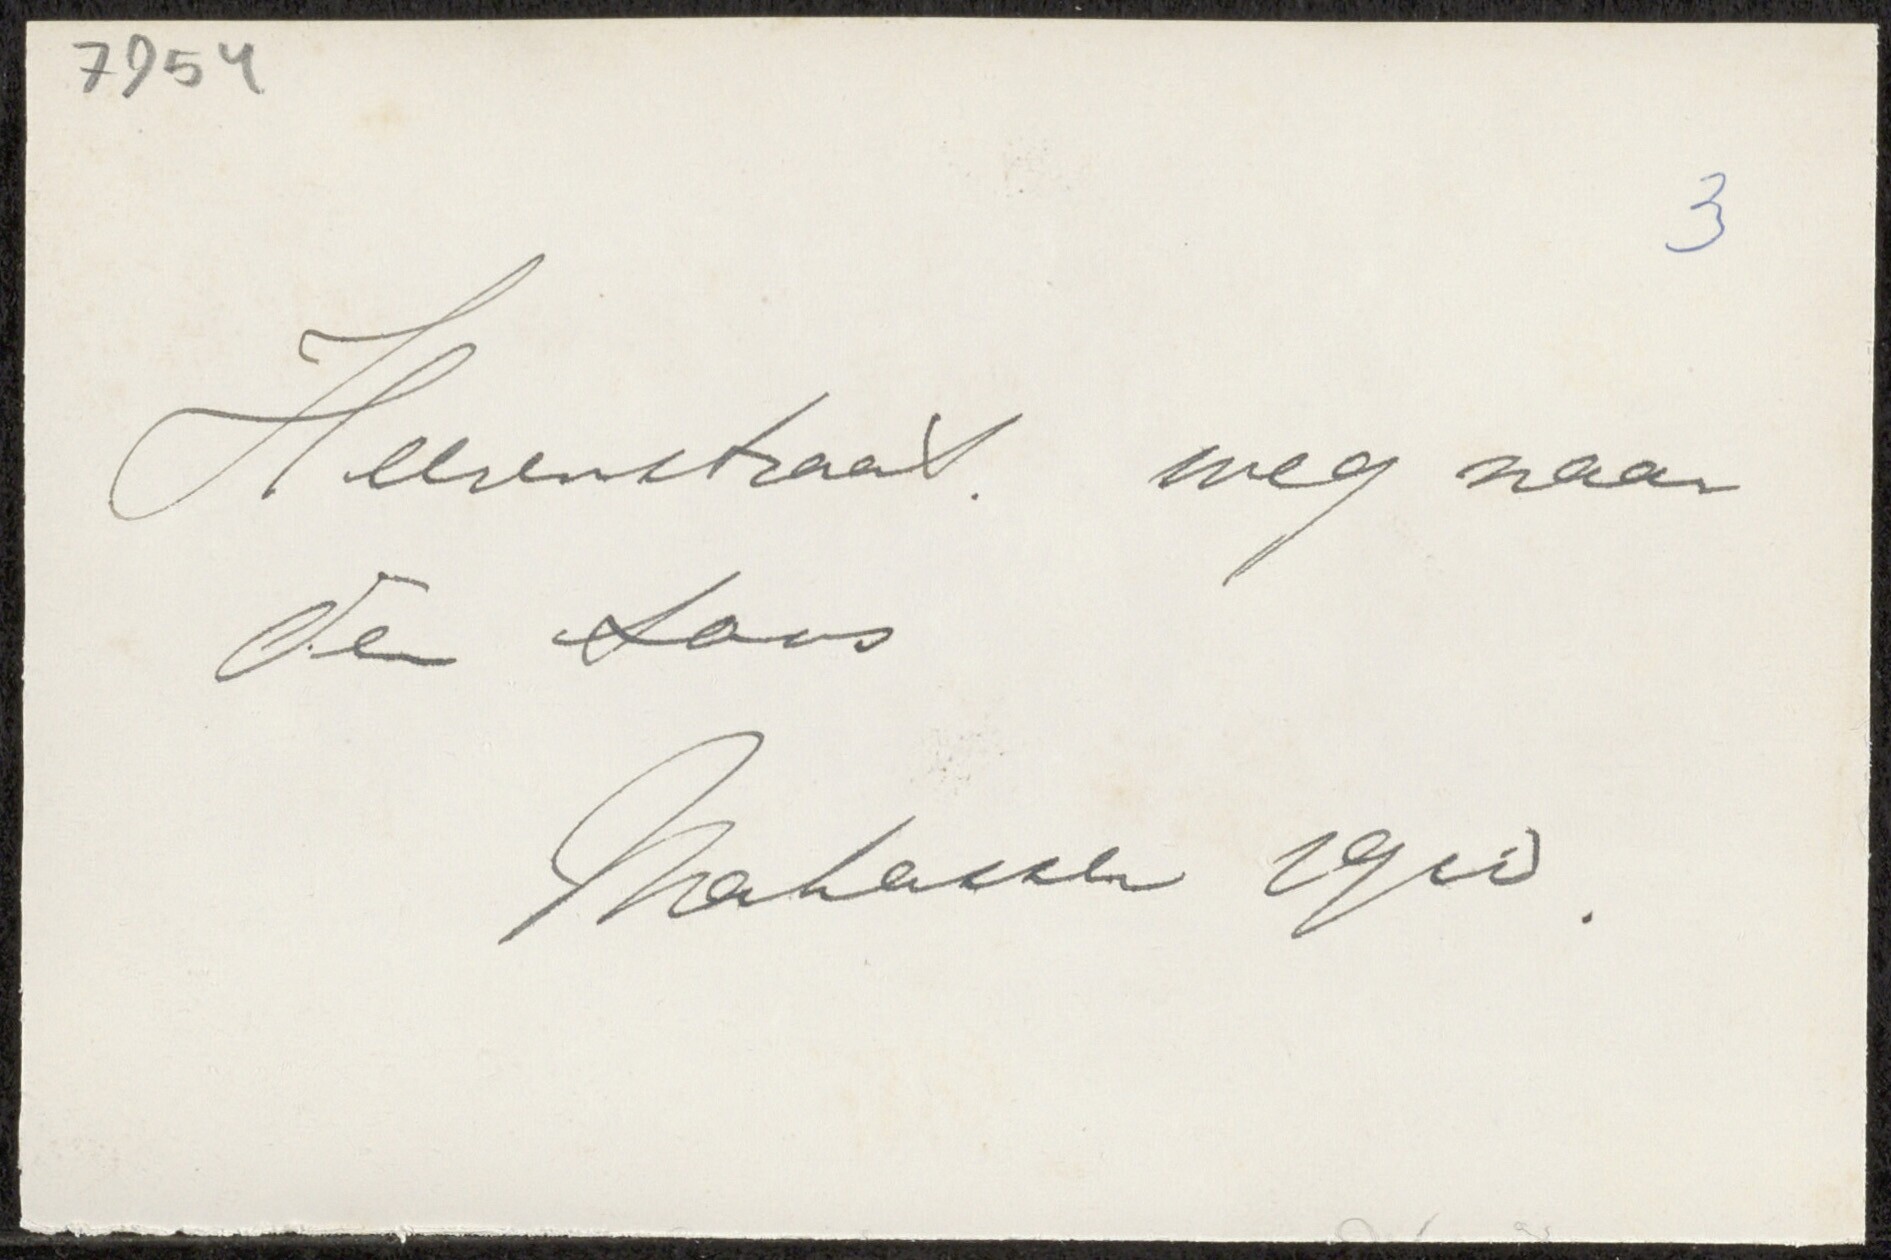 7954
3
Heerenstraat. weg naar
den
Makasser 1910.